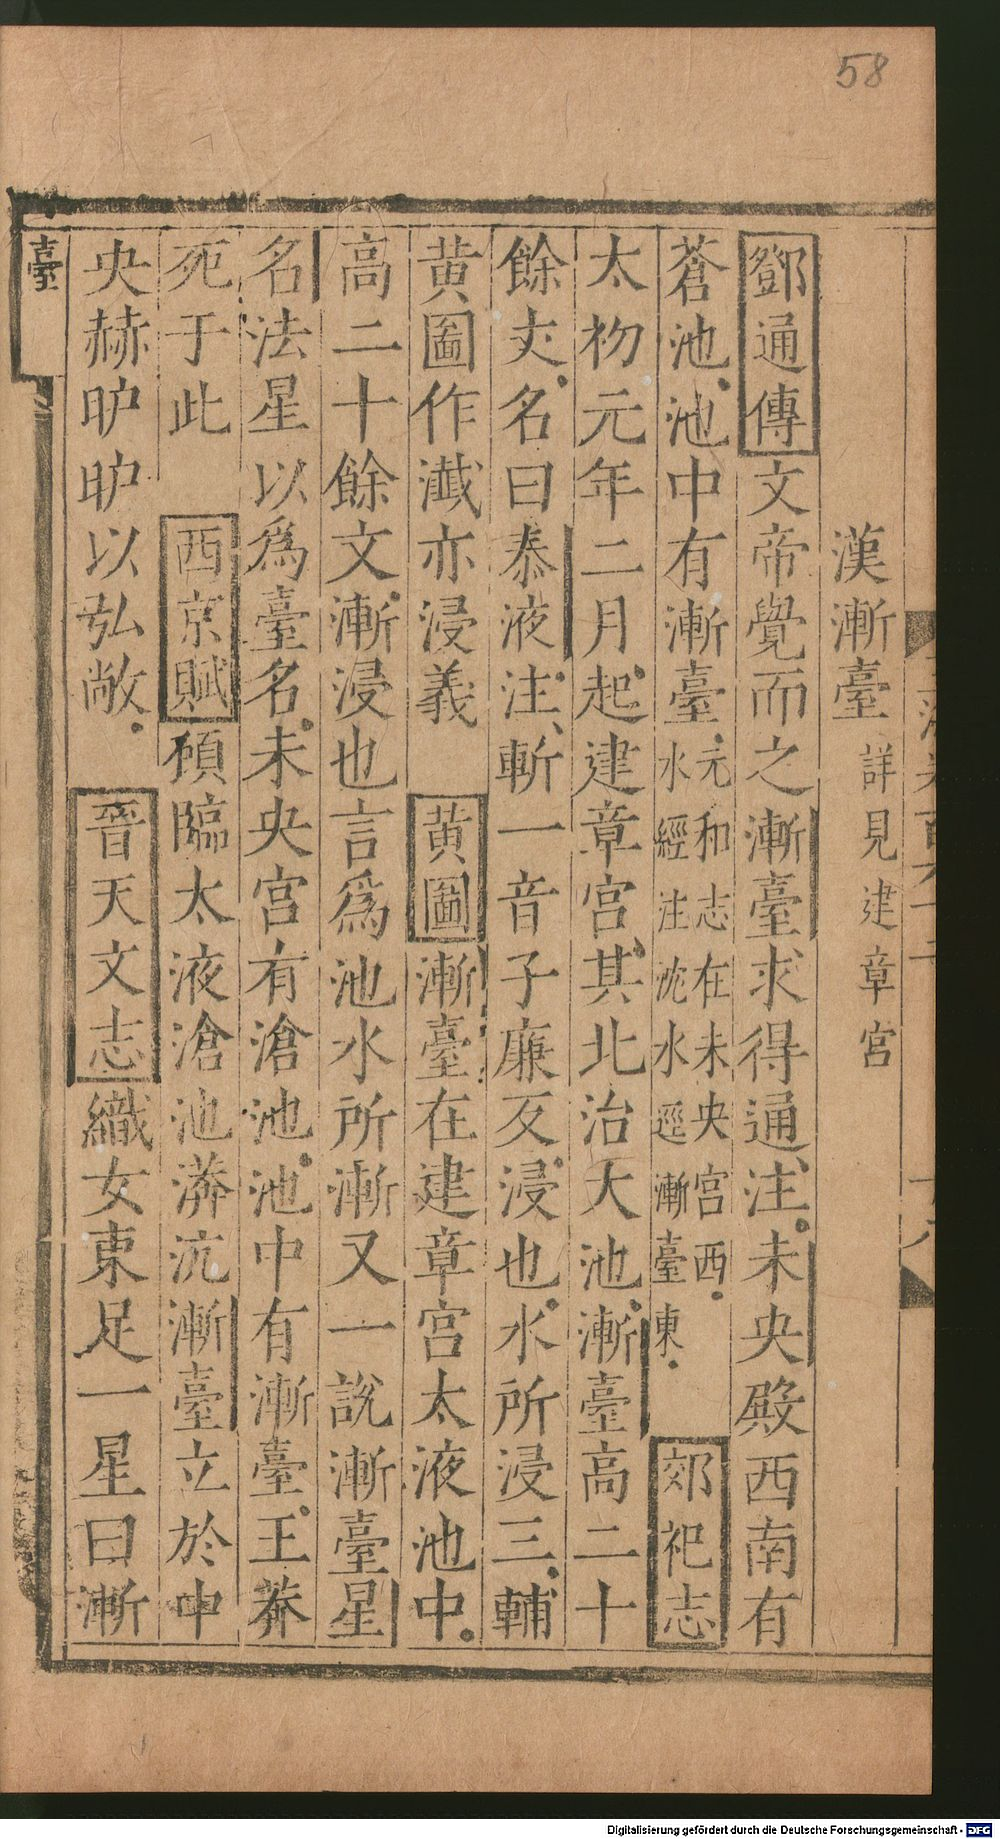 58
漢漸臺 詳見建章宮
鄧通傳文帝覺而之漸臺求得通注未央殿西南有
蒼池池中有漸臺元和志在未央宮西水經注沇水逕漸臺東郊祀志
太初元年二月起建章宮其北治大池漸臺高二十
餘丈名曰泰液注漸一音子廉反浸也水所浸三輔
黃圖作瀸亦浸義 黃圖漸臺在建章宮太液池中
高二十餘丈漸浸也言爲池水所漸又一說漸臺星
名法星以爲臺名未央宮有滄池池中有漸臺王莽
死于此 西京賦顧臨太液滄池漭沆漸臺立於中
央赫昈昈以弘敞 晉天文志織女東足一星曰漸
臺
Digitalisierung gefördert durch die Deutsche Forschungsgemeinschaft - DFG